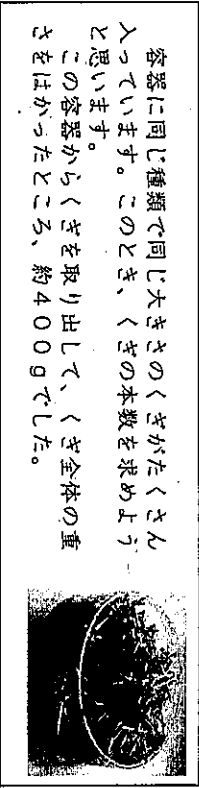 容器に同じ種類で同じ大きさのくぎがたくさん
入っています。このとき、くぎの本数を求めよう
と思います。
この容器からくぎを取り出して、くぎ全体の重
さをはかったところ、約400gでした。